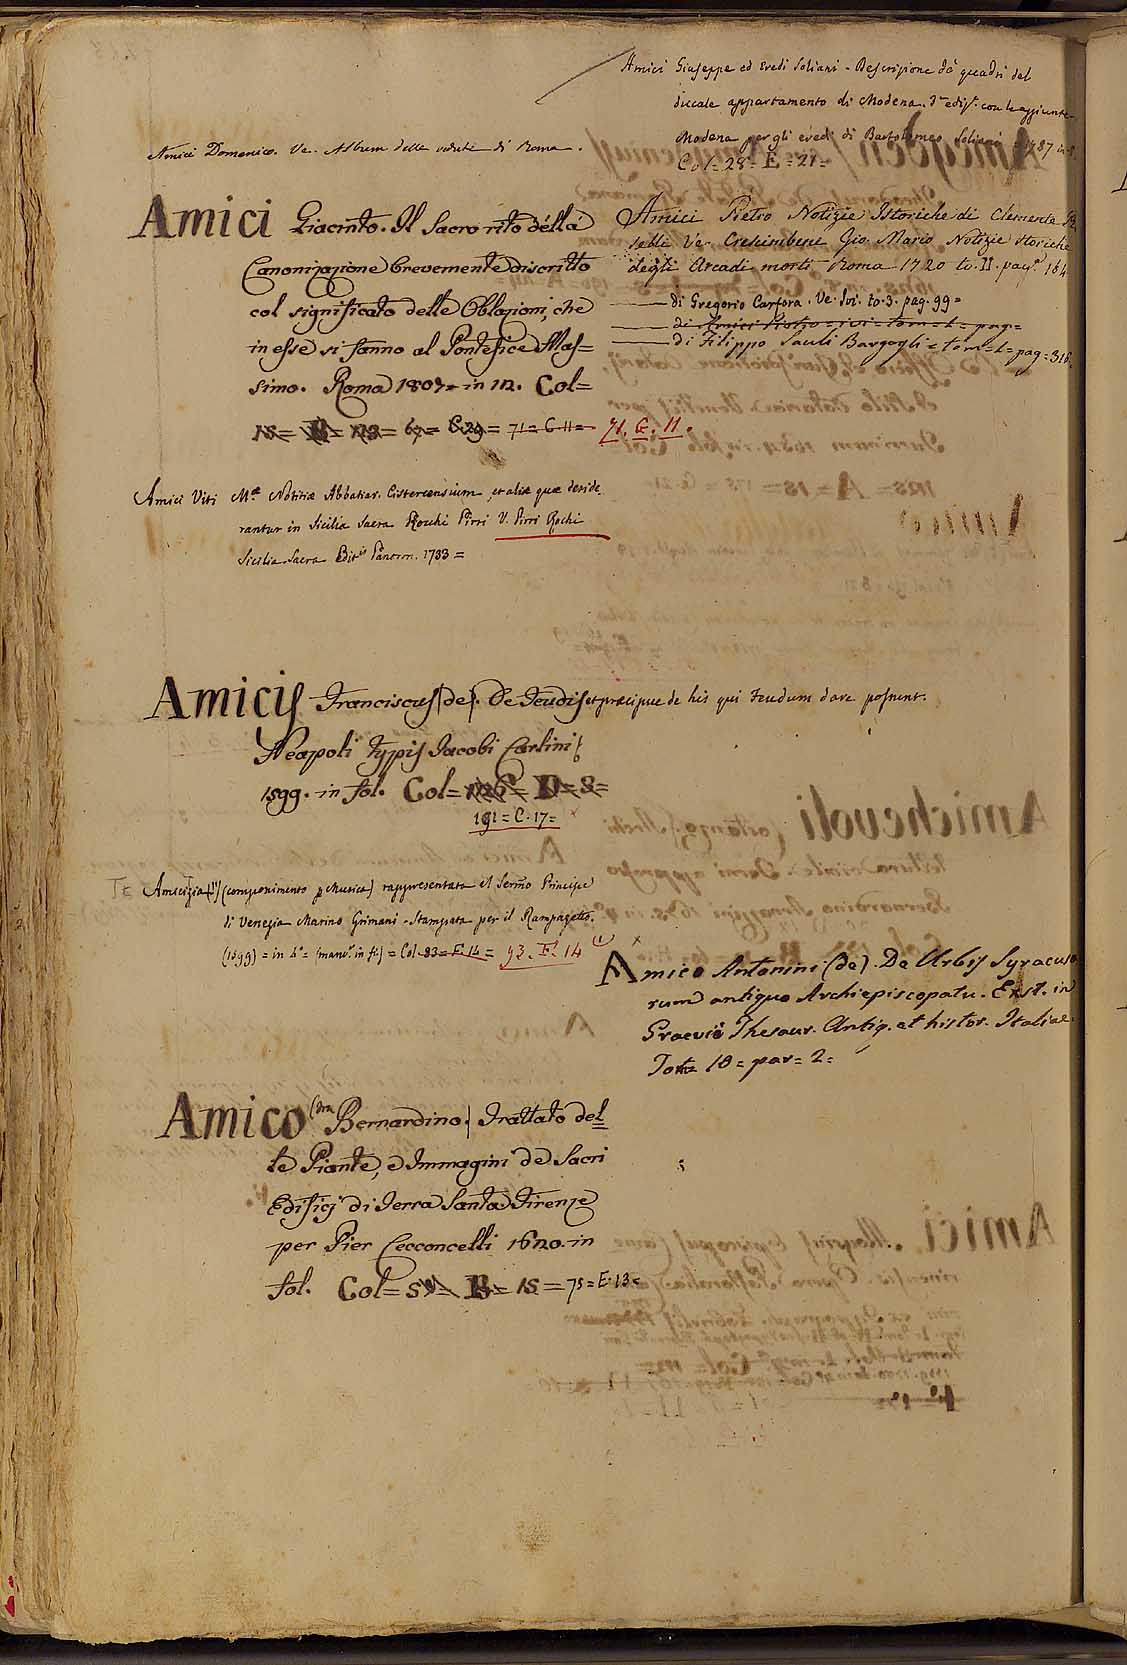 Amici Domenico. Ve. Album delle vedute di Roma.
Amici Giacinto. Il Sacro rito della
Canonizazione brevemente discritto
col significato delle Oblazioni, che
in esse si fanno al Pontefice Mas=
simo. Roma 1807. in 12. Col=
67= C.29= 71= C.11= 71. C. 11.
Amici Viti M.æ Notitiæ Abbatiar. Cistercensium, et aliæ quæ deside
rantur in Sicilia Sacra Rocchi Pirri V. Pirri Rochi
Sicilia Sacra Edit. Panorm. 1733=
Amicis Franciscus (de). De Feudis et præcipue de his qui Feudum dare possunt.
Neapoli Typis Jacobi Carlini
1599. in fol. Col=
191= C. 17=
Amicizia (L') (componimento p Musica) rappresentata al Sermo Principe
di Venezia Marino Grimani - Stampata per il Rampazetto.
(1599) = in 4.° = (manc. in fi.) = Col. 93= F. 14 = 93. F. 14
Amico (Fra Bernardino.) Trattato del
le Piante, e Immagini de Sacri
Edifici di Terra Santa Firenze
per Pier Cecconcelli 1620. in
fol. Col= B= 15= 75= E. 13=
Amici Giuseppe ed Eredi Soliani - Descrizione de quadri del
ducale appartamento di Modena. 3.a ediz. con le aggiunte
Modena per gli eredi di Bartolomeo Soliani = 1787 in 8.
Col= 28= E= 21=
Amici Pietro Notizie Istoriche di Clemente
Ve. Crescimbeni Gio. Mario Notizie storiche
degli Arcadi morti Roma 1720 to. II. pag. 164
—— di Gregorio Carfora. Ve. Ivi. to. 3. pag. 99=
—— di Amici Pietro = ivi = tom = 1 = pag=
—— di Filippo Sauli Bargagli = tom = 1 = pag = 316.
Amico Antonini (de). De Urbis Syracusa
rum antiquo Archiepiscopatu. Exst. in
Graevii Thesaur. Antiq. et histor. Italiae.
Tom= 10 = par= 2=